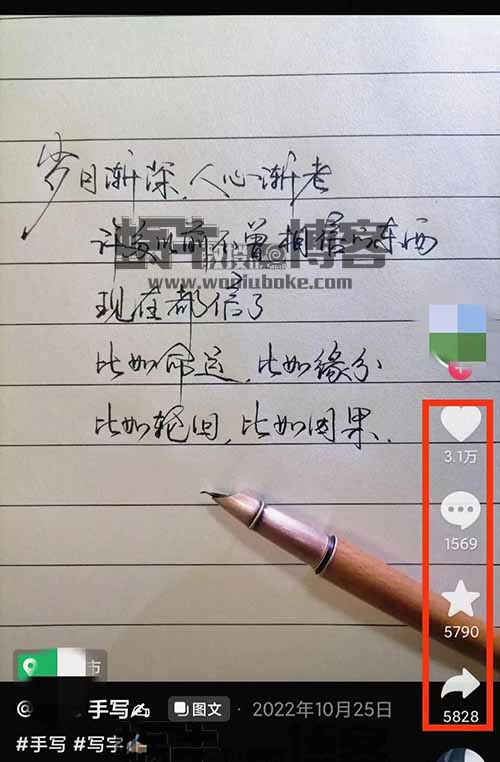 岁日渐深,人心渐老
许多以前不曾相信的东西
现在都信了
比如命运,比如缘分
比如轮回,比如因果.
博客
www.woniuboke.com
3.1万
1569
5790
5828
市
@ 手写✍
图文 · 2022年10月25日
#手写 #写字✍